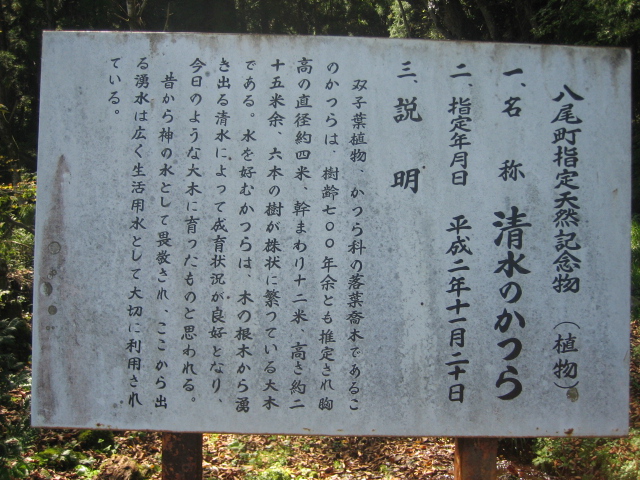 八尾町指定天然記念物 （植物）
一、名 称 清水のかつら
二、指定年月日 平成二年十一月二十日
三、説 明
双子葉植物、かつら科の落葉喬木であるこ
のかつらは、樹齢七〇〇年余とも推定され胸
高の直径約四米、幹まわり十二米、高さ約二
十五米余、六本の樹が株状に繁っている大木
である。水を好むかつらは、木の根木から湧
き出る清水によって成育状況が良好となり、
今日のような大木に育ったものと思われる。
昔から神の水として畏敬され、ここから出
る湧水は広く生活用水として大切に利用され
ている。